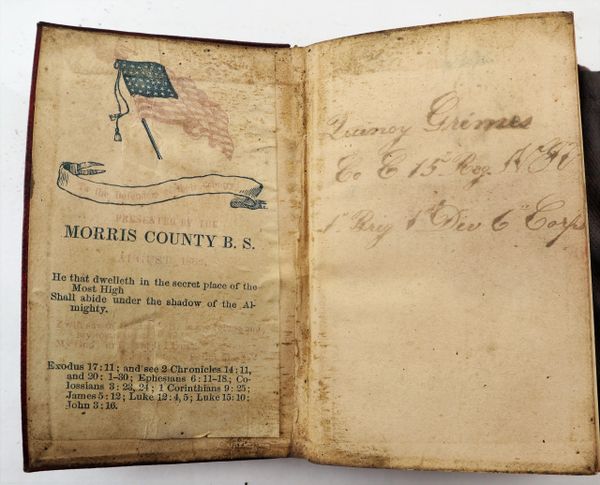 To the Defenders of their Country,
PRESENTED BY THE
MORRIS COUNTY B. S.
AUGUST, 1862.
He that dwelleth in the secret place of the
Most High
Shall abide under the shadow of the Al-
mighty.
Exodus 17:11; and see 2 Chronicles 14:11,
and 20: 1-30; Ephesians 6:11-18; Co-
lossians 3:23, 24; 1 Corinthians 9:25;
James 5:12; Luke 12:4, 5; Luke 15:10;
John 3:16.
Quincy Grimes
Co E 15 Reg N
1st Brig 1st Div 6th Corps